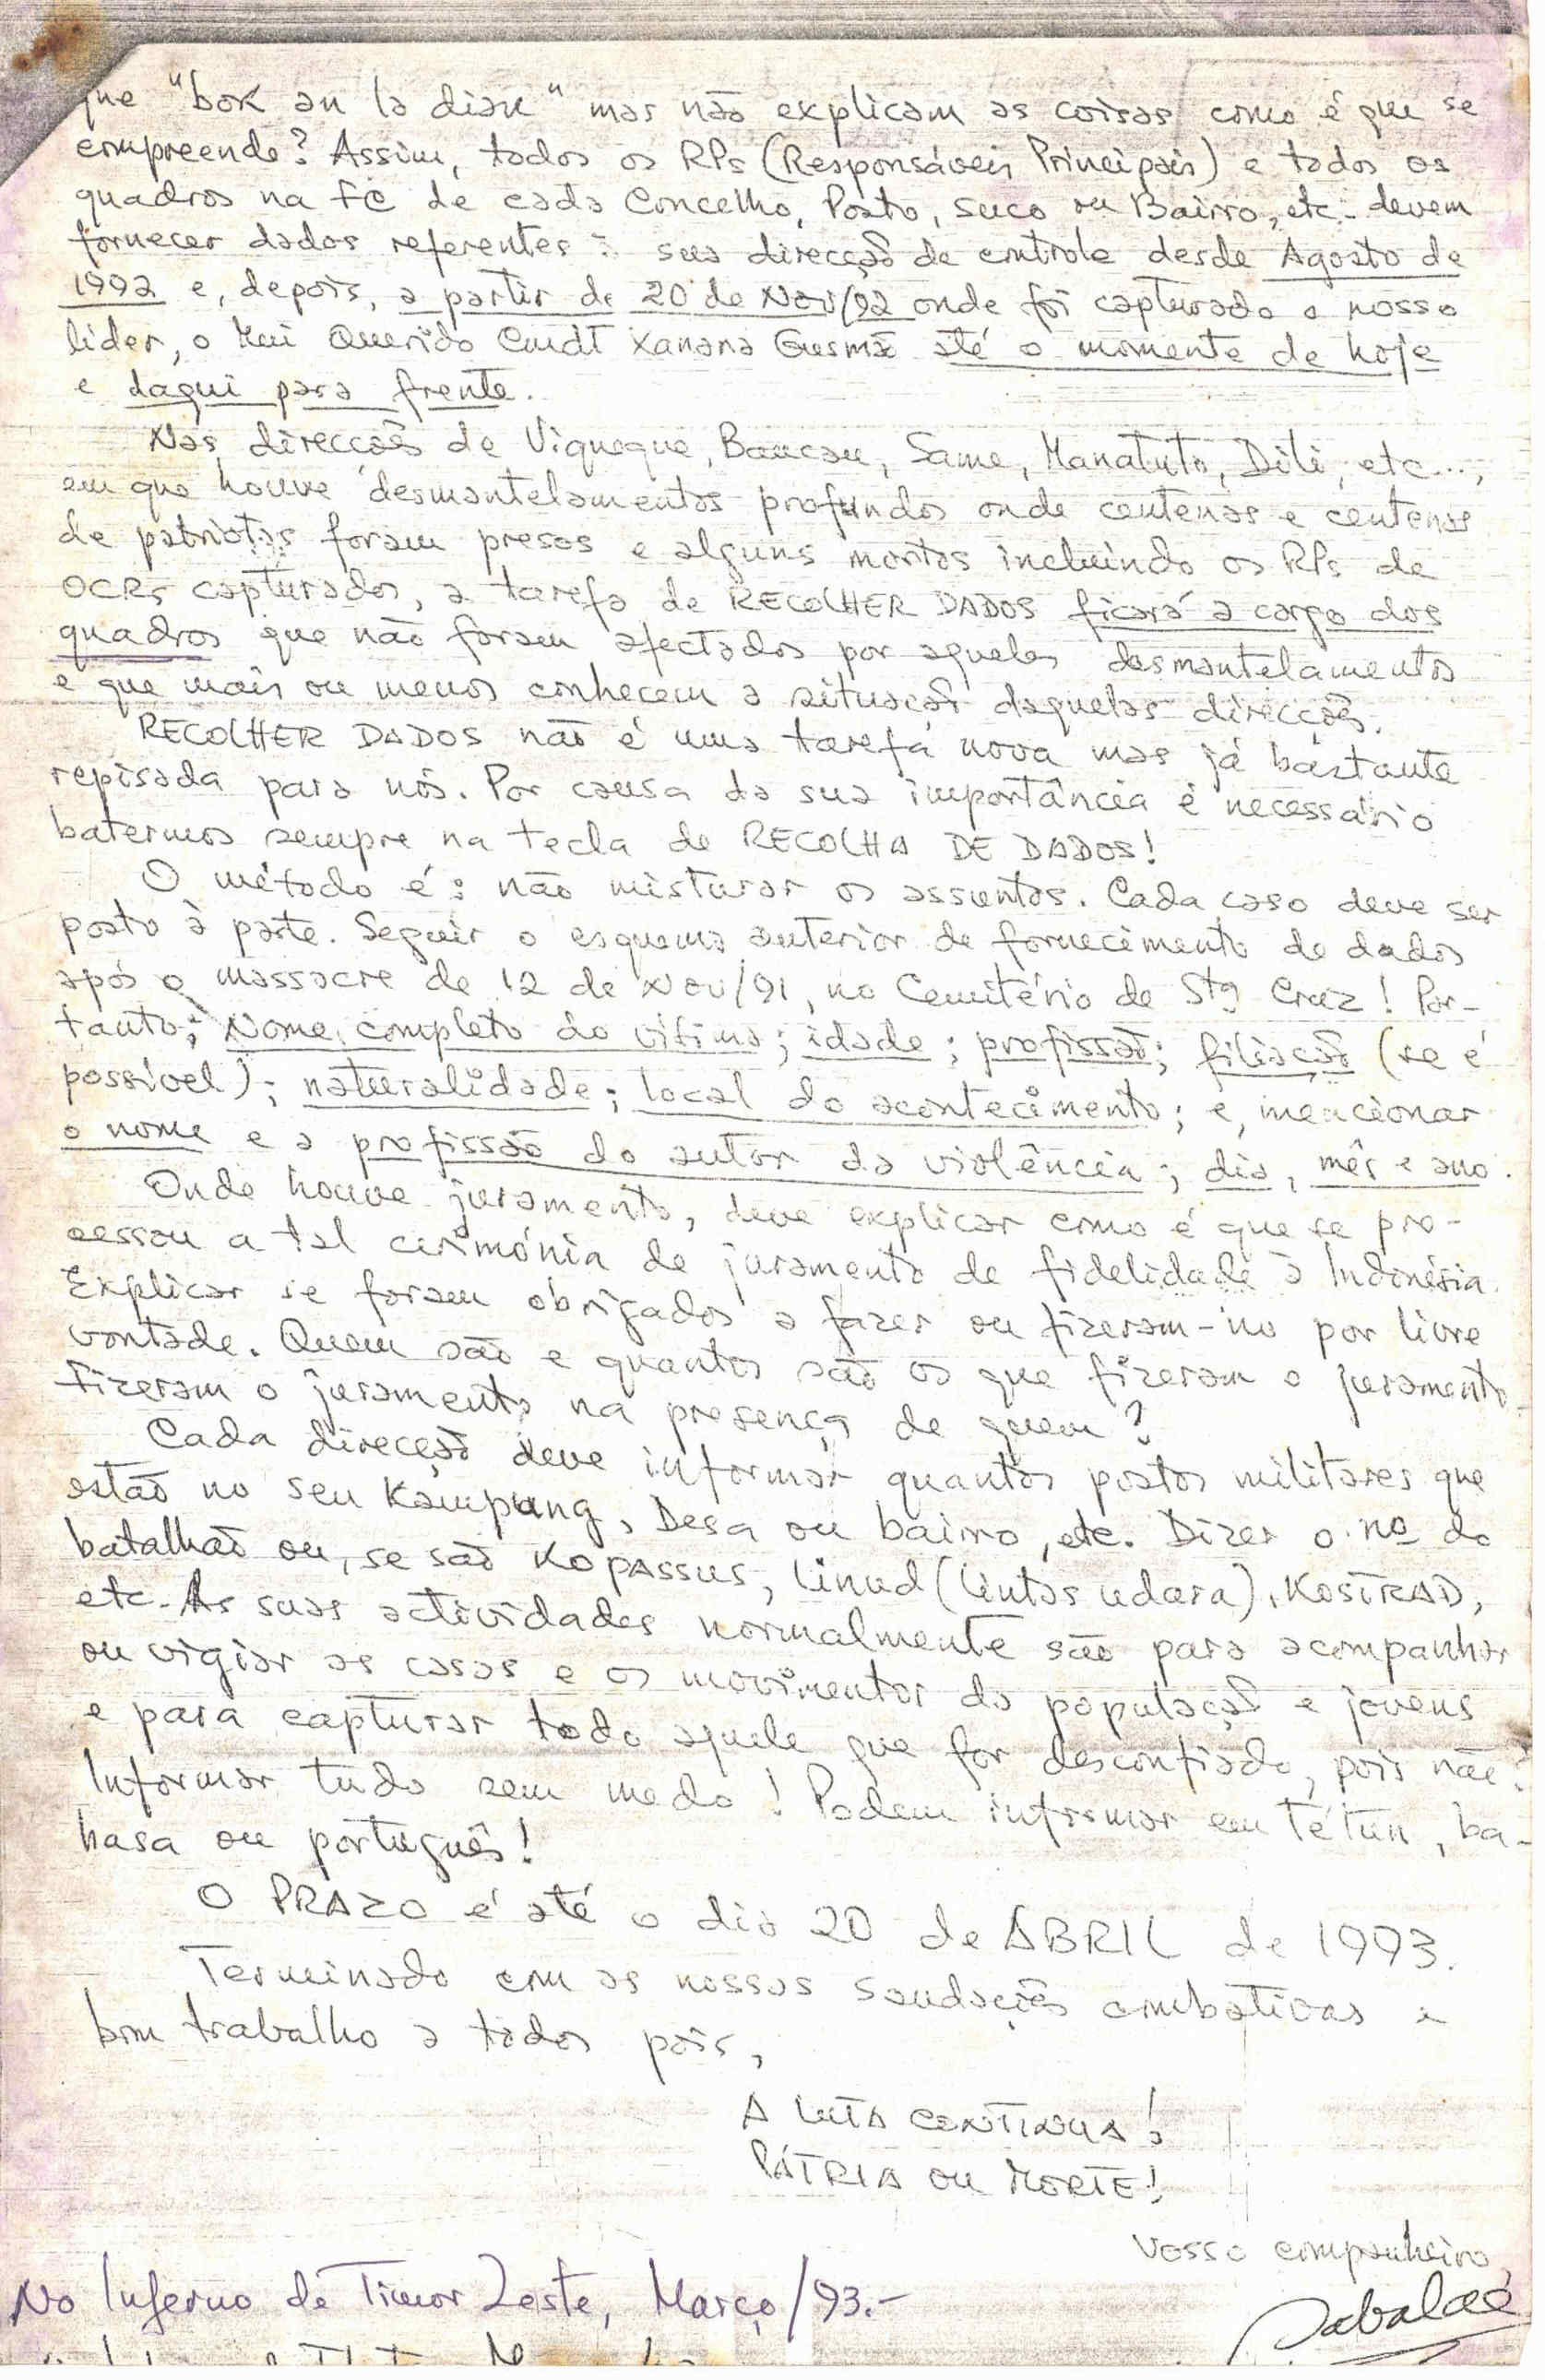 que "bok an la diak" mas não explicam as coisas como é que se
compreende? Assim, todos os RPs (Responsáveis Principais) e todos os
quadros na FC de cada Concelho, Posto, Suco ou Bairro, etc. devem
fornecer dados referentes à sua direcção de controle desde Agosto de
1992 e, depois, a partir de 20 de Nov/92 onde foi capturado o nosso
líder, o Mui Querido Cmdt Xanana Gusmão até o momento de hoje
e daqui para frente.
Nas direcções de Viqueque, Baucau, Same, Manatuto, Díli, etc...,
em que houve desmantelamentos profundos onde centenas e centenas
de patriotas foram presos e alguns mortos incluindo os RPs de
OCRs capturados, a tarefa de RECOLHER DADOS ficará a cargo dos
quadros que não foram afectados por aqueles desmantelamentos
e que mais ou menos conhecem a situação daquelas direcções.
RECOLHER DADOS não é uma tarefa nova mas já bastante
repisada para nós. Por causa da sua importância é necessário
batermos sempre na tecla de RECOLHA DE DADOS!
O método é: não misturar os assuntos. Cada caso deve ser
posto à parte. Seguir o esquema anterior de fornecimento de dados
após o massacre de 12 de Nov/91, no Cemitério de Stª Cruz! Por-
tanto; Nome completo da vítima; idade; profissão; filiação (se é
possível); naturalidade; local do acontecimento; e, mencionar
o nome e a profissão do autor da violência; dia, mês e ano.
Onde houve juramento, deve explicar como é que se pro-
cessou a tal cerimónia de juramento de fidelidade à Indonésia.
Explicar se foram obrigados a fazer ou fizeram-no por livre
vontade. Quem são e quantos são os que fizeram o juramento
fizeram o juramento na presença de quem?
Cada direcção deve informar quantos postos militares que
estão no seu Kampung, Desa ou bairro, etc. Dizer o nº do
batalhão ou, se são KOPASSUS, Linud (lintas udara), KOSTRAD,
etc. As suas actividades normalmente são para acompanhar
ou vigiar as casas e os movimentos da população e jovens
e para capturar todo aquele que for desconfiado, pois não?
Informar tudo sem medo! Podem informar em Tétun, ba-
hasa ou português!
O PRAZO é até o dia 20 de ABRIL de 1993.
Terminado com as nossas saudações combativas e
bom trabalho a todos pois,
A LUTA CONTINUA!
PÁTRIA OU MORTE!
Vosso companheiro,
No Inferno de Timor Leste, Março/93.-
Sabalae